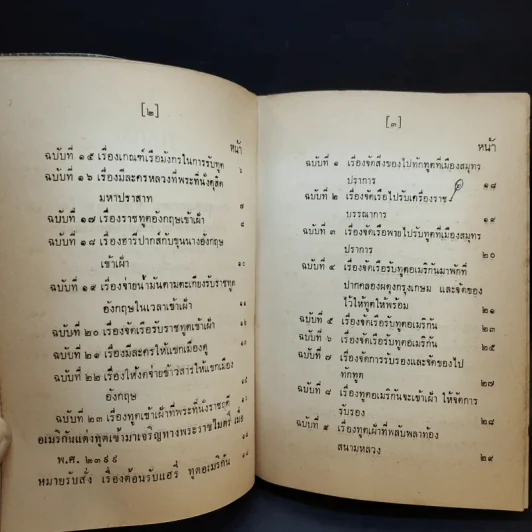 [๒]
หน้า
ฉบับที่ ๑๕ เรื่องเกณฑ์เรือมังกรในการรับทูต ๖
ฉบับที่ ๑๖ เรื่องมีละครหลวงที่พระที่นั่งดุสิต
มหาปราสาท ๗
ฉบับที่ ๑๗ เรื่องราชทูตอังกฤษเข้าเฝ้า ๗
ฉบับที่ ๑๘ เรื่องฮารีปากส์กับขุนนางอังกฤษ
เข้าเฝ้า ๑๐
ฉบับที่ ๑๙ เรื่องจ่ายน้ำมันตามตะเกียงรับราชทูต
อังกฤษในเวลาเข้าเฝ้า ๑๑
ฉบับที่ ๒๐ เรื่องจัดเรือรับราชทูตเข้าเฝ้า
ฉบับที่ ๒๑ เรื่องมีละครให้แขกเมืองดู
ฉบับที่ ๒๒ เรื่องให้งดจ่ายข้าวสารให้แขกเมือง
อังกฤษ
ฉบับที่ ๒๓ เรื่องทูตเข้าเฝ้าที่พระที่นั่งราชฤดี
อเมริกันแต่งทูตเข้ามาเจริญทางพระราชไมตรี เมื่อ
พ.ศ. ๒๓๙๙
หมายรับสั่ง เรื่องต้อนรับแฮรี่ ทูตอเมริกัน
[๓]
หน้า
ฉบับที่ ๑ เรื่องจัดสิ่งของไปทักทูตที่เมืองสมุทร
ปราการ ๑๘
ฉบับที่ ๒ เรื่องจัดเรือไปรับเครื่องราช
บรรณาการ ๑๙
ฉบับที่ ๓ เรื่องจัดเรือพายไปรับทูตที่เมืองสมุทร
ปราการ ๒๐
ฉบับที่ ๔ เรื่องจัดเรือรับทูตอเมริกันมาพักที่
ปากคลองผดุงกรุงเกษม และจัดของ
ไว้ให้ทูตให้พร้อม ๒๑
ฉบับที่ ๕ เรื่องจัดเรือรับทูตอเมริกัน ๒๓
ฉบับที่ ๖ เรื่องจัดเรือรับทูตอเมริกัน ๒๕
ฉบับที่ ๗ เรื่องจัดการรับรองและจัดของไป
ทักทูต ๒๗
ฉบับที่ ๘ เรื่องทูตอเมริกันจะเข้าเฝ้า ให้จัดการ
รับรอง ๒๘
ฉบับที่ ๙ เรื่องทูตเฝ้าที่พลับพลาท้อง
สนามหลวง ๒๙